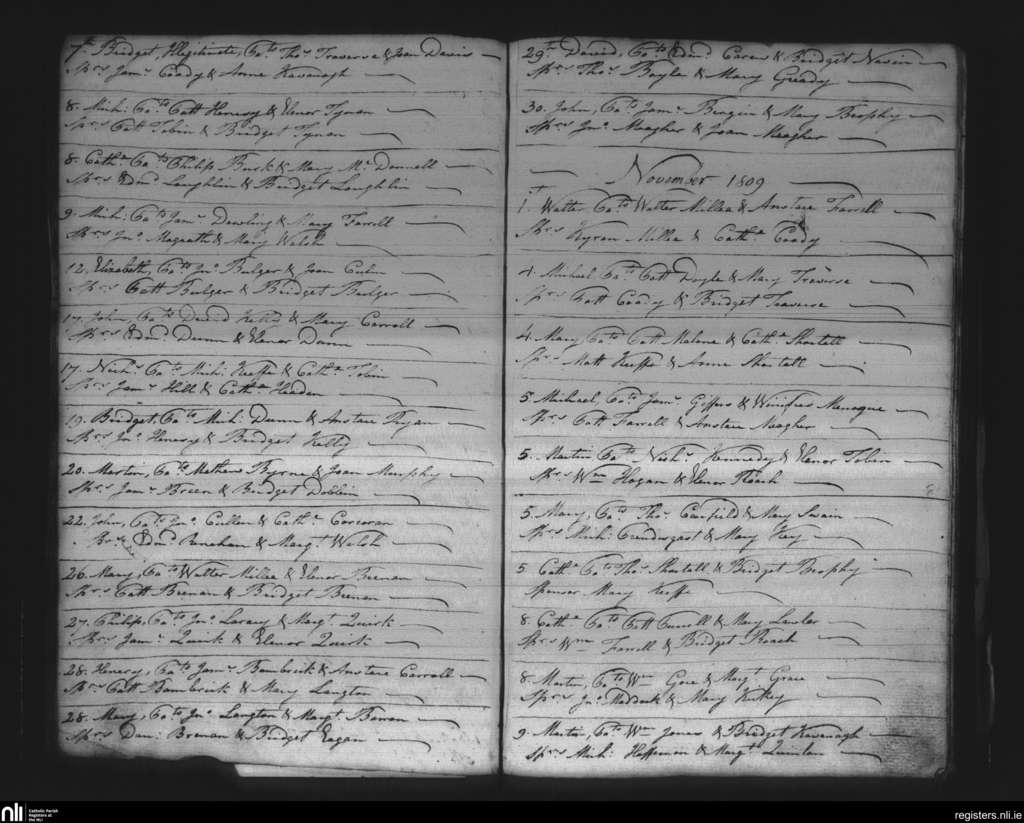 7th. Bridget, Illegitimate, Ca. to Thos. Traverse & Joan Davis
Sprs Jams. Coady & Anne Kavanagh
8. Mich: Ca. to Catt Henesy & Elenor Tynan
Sprs Catt Tobin & Bridget Tynan
8. Cathe. Ca. to Philip Busk & Mary Mc. Donnell
Sprs Edmd. Laughlin & Bridget Laughlin
9. Mich: Ca. to Jams. Dowling & Mary Farrell
Sprs Jno. Magrath & Mary Walsh
12. Elizabeth, Ca. to Jno. Bulger & Joan
Sprs Catt Bulger & Bridget Bulger
17. John, Ca. to David Kelly & Mary Carroll
Sprs Edmd. Dunn & Elenor Dunn
17. Nichs. Ca. to Mich: Keeffe & Cathe. Tobin
Sprs Jams. Hill & Cathe. Headen
19. Bridget, Ca. to Mich: Dunn & Anstace
Sprs Jno. Henesy & Bridget Kelly
20. Martin, Ca. to Mathew Byrne & Joan Murphy
Sprs Jams. Breen & Bridget Doblin
22. John, Ca. to Jno. Cullen & Cathe. Corcoran
Edmd. & Margt. Walsh
26. Mary, Ca. to Walter Millea & Elenor Brenan
Sprs Catt Brenan & Bridget Brenan
27. Philip, Ca. to Jno. Laracy & Margt. Quirk
Sprs Jams. Quirk & Elenor Quirk
28. Henery, Ca. to Jams. Bambrick & Anstace Carroll
Sprs Catt Bambrick & Mary Langton
28. Mary, Ca. to Jno. Langton & Margt. Bawan
Sprs Dan: Brenan & Bridget Eagan
29th. David, Ca. to Edmd. Carew & Bridget Navin
Sprs Thos. Boyle & Mary Gready
30. John, Ca. to Jams. Bergin & Mary Brophy
Sprs Jno. Meagher & Joan Meagher
November 1809
1st. Walter, Ca. to Walter Millea & Anstace Farrell
Sprs Kyran Millea & Cathe. Coady
4. Michael Ca. to Catt Doyle & Mary Traverse
Sprs Catt Coady & Bridget Traverse
4. Mary, Ca. to Catt Malone & Cathe. Shortall
Sprs Matt Keeffe & Anne Shortall
5. Michael, Ca. to Jams. & Winifred
Sprs Catt Farrell & Anstace Meagher
5. Martin Ca. to Nichs. Kennedy & Elenor Tobin
Sprs Wm Hogan & Elenor Roach
5. Mary, Ca. to Thos. Canfield & Mary Swain
Sprs Mich: Prendergast & Mary
5 Cathe. Ca. to Thos. Shortall & Bridget Brophy
Sponsor Mary Keeffe
8. Cathe. Ca. to Catt & Mary Lawler
Sprs Wm Farrell & Bridget Roach
8. Martin, Ca. to Wm Gore & Margt. Grace
Sprs Jno. Maddock & Mary
9. Martin, Ca. to Wm Jones & Bridget Kavenagh
Sprs Mich: Heffernan & Margt. Quinlan
nli
Catholic Parish
Registers at
the NLI
registers.nli.ie